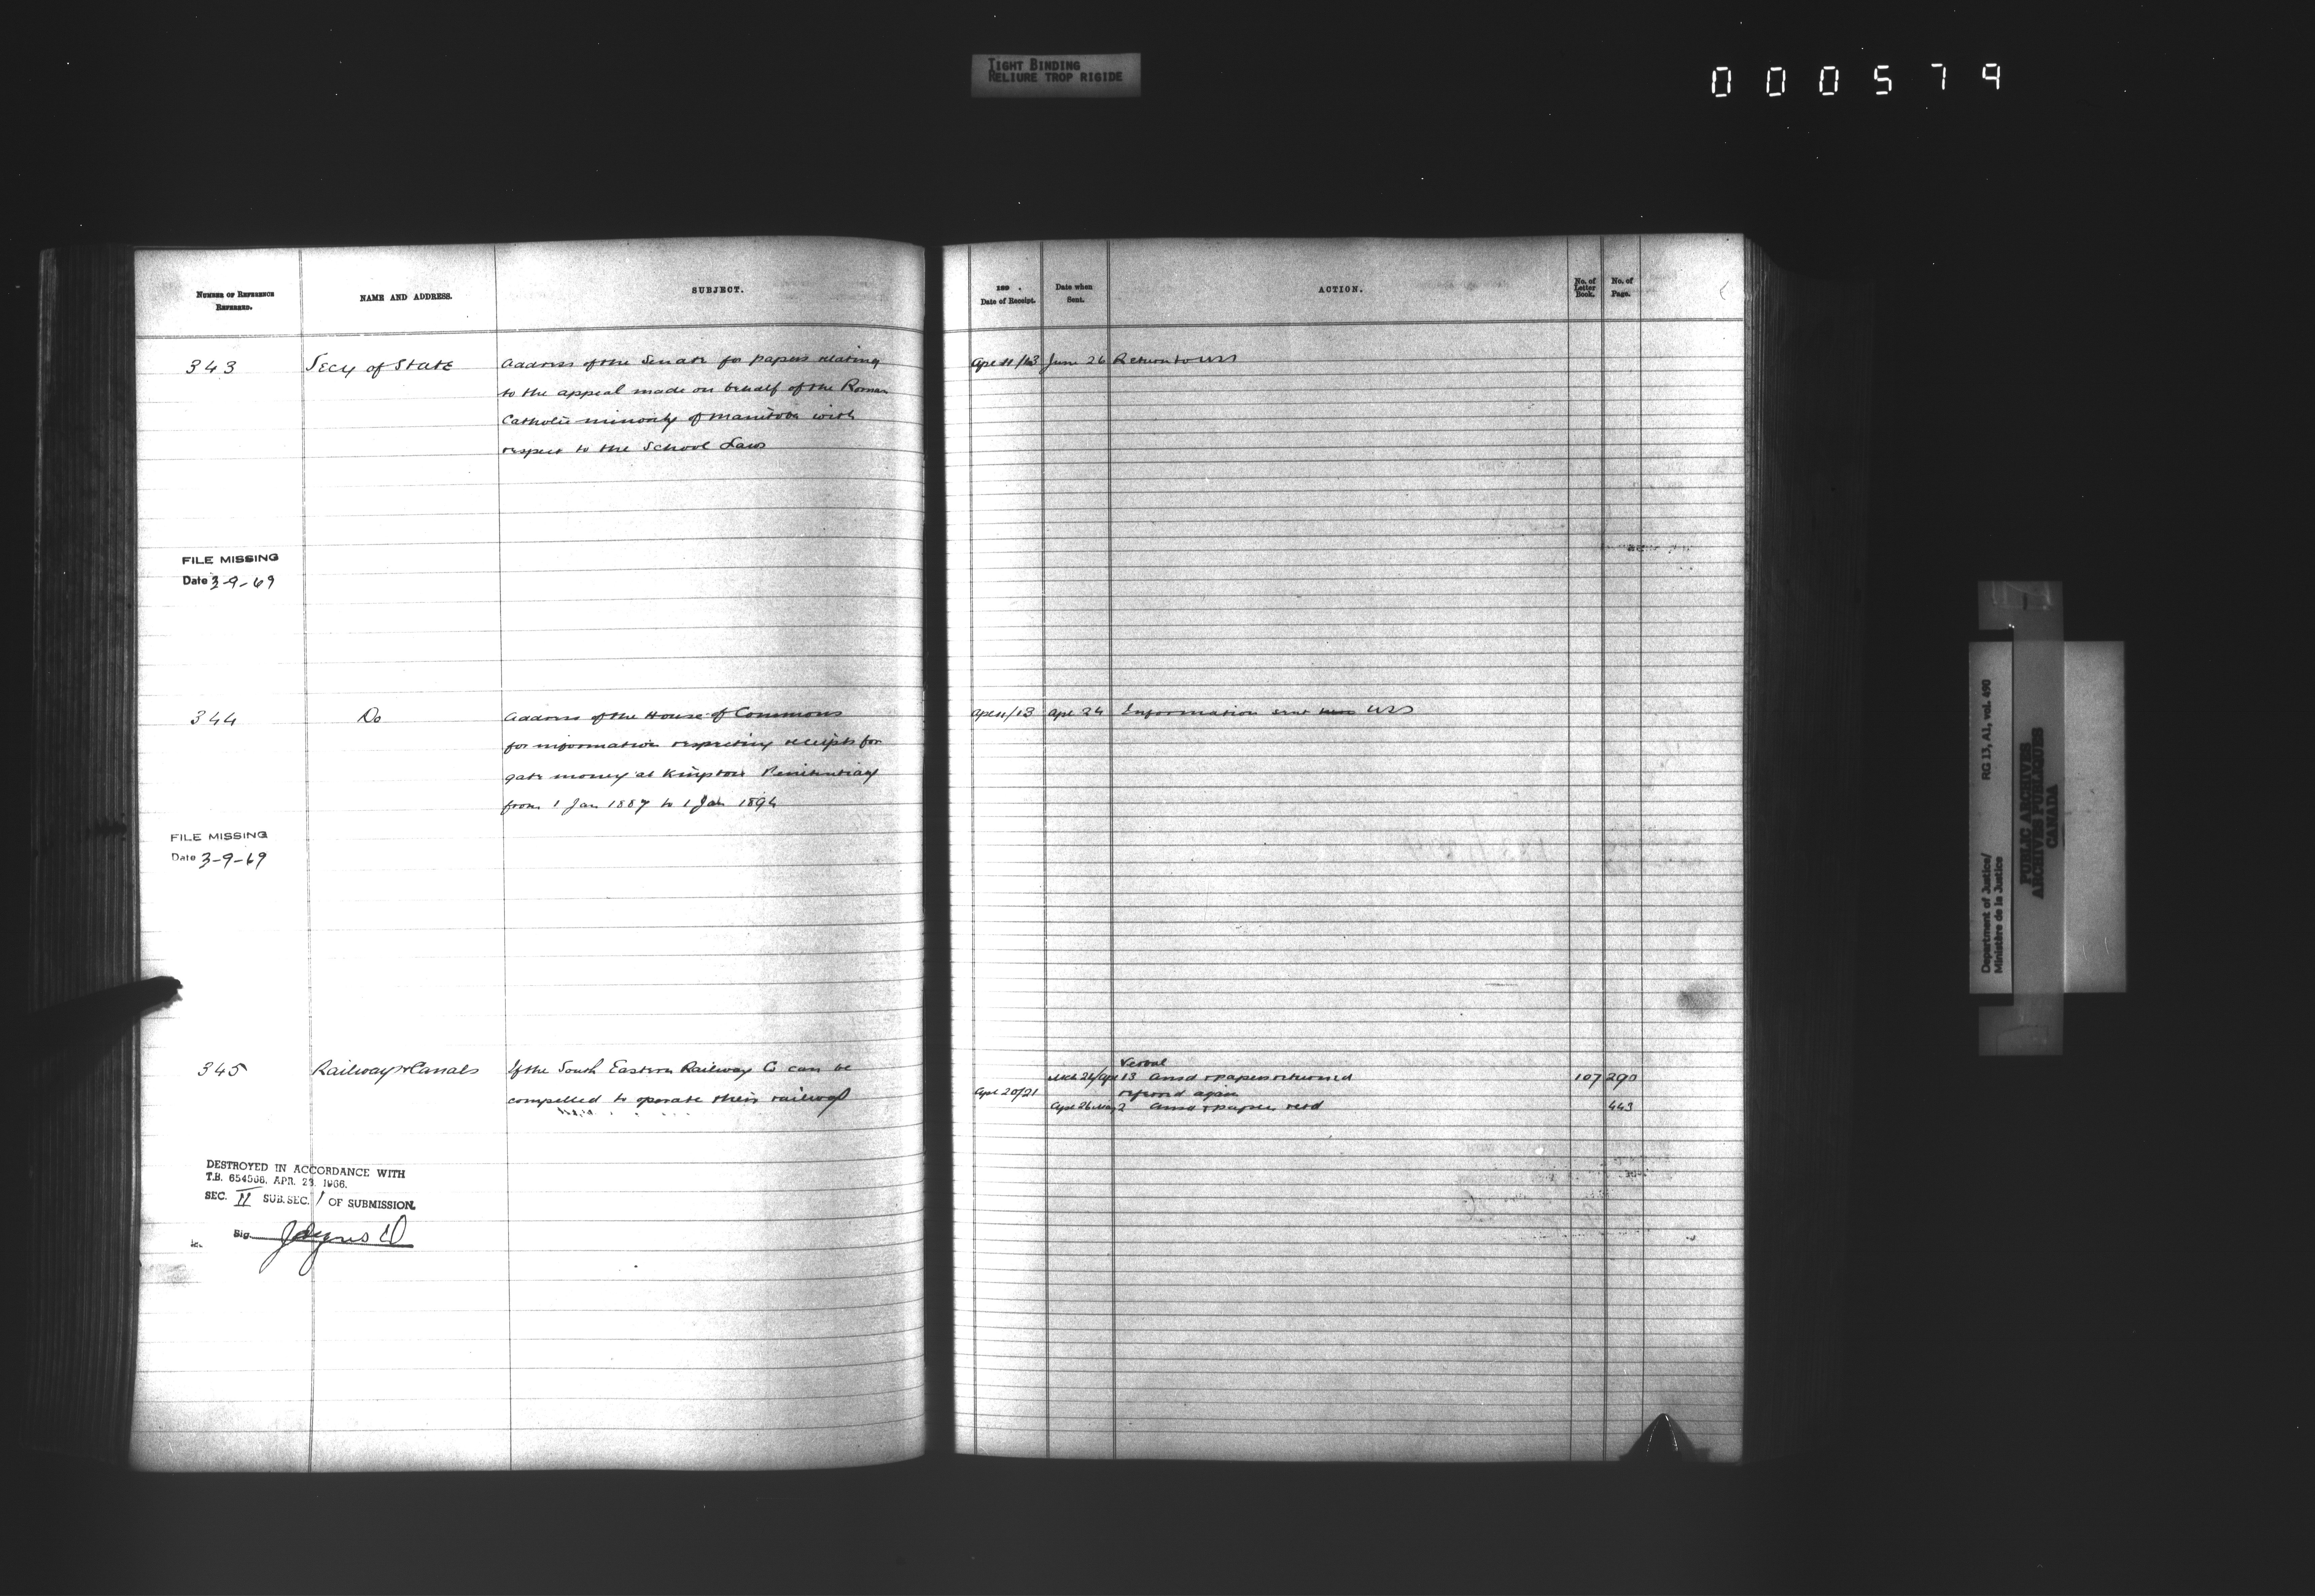 TIGHT BINDING
RELIURE TROP RIGIDE
000579
NUMBER OF REFERENCE REFERRED.
NAME AND ADDRESS.
SUBJECT.
189 .
Date of Receipt.
Date when Sent.
ACTION.
No. of Letter Book.
No. of Page.
343 Secy of State Address of the Senate for papers relating Apl 11/13 June 26 Return to USS
to the appeal made on behalf of the Roman
Catholic minority of Manitoba with
respect to the School Laws
FILE MISSING
Date 3-9-69
344 Do Address of the House of Commons Apl 11/13 Apl 24 Information sent USS
for information respecting receipts for
gate money at Kingston Penitentiary
from 1 Jan 1887 to 1 Jan 1894
FILE MISSING
Date 3-9-69
Verbal
345 Railway & Canals If the South Eastern Railway Co can be Mch 26/Apl 13 Ansd & papers returned 107 290
compelled to operate their railway Apl 20/21 referred again
Apl 26 May 2 Ansd & papers retd 443
DESTROYED IN ACCORDANCE WITH
T.B. 654506, APR. 29, 1966.
SEC. II SUB.SEC. 1 OF SUBMISSION.
Sig.
Department of Justice/ RG 13, A1, vol. 490
Ministère de la Justice
PUBLIC ARCHIVES
ARCHIVES PUBLIQUES
CANADA